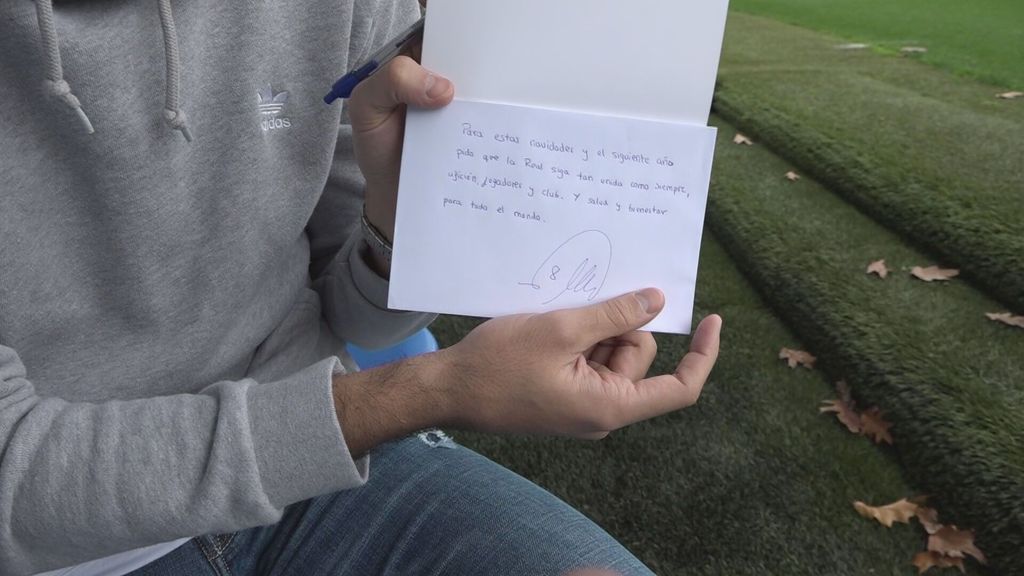 adidas
Para estas navidades y el siguiente año
pido que la Real siga tan unida como siempre,
afición, jugadores y club. Y salud y bienestar
para todo el mundo.
8